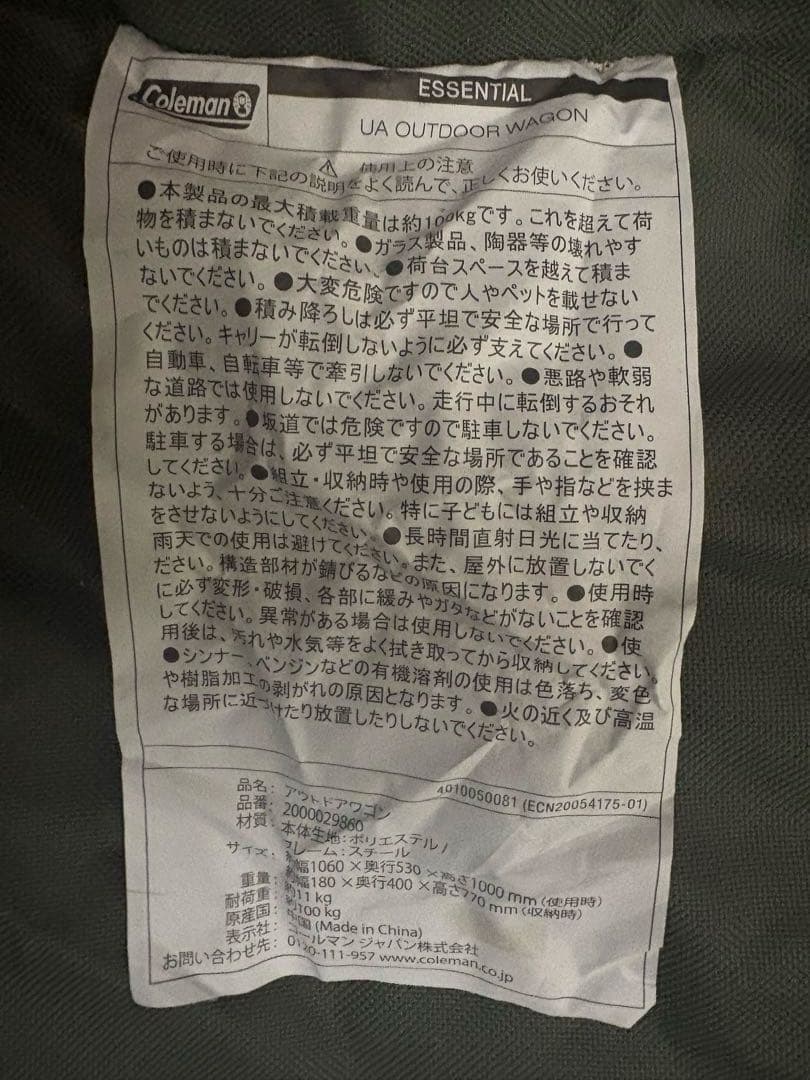 Coleman
ESSENTIAL
UA OUTDOOR WAGON
⚠ 使用上の注意
ご使用時に下記の説明をよく読んで、正しくお使いください。
●本製品の最大積載重量は約100kgです。これを超えて荷
物を積まないでください。●ガラス製品、陶器等の壊れやす
いものは積まないでください、●荷台スペースを越えて積ま
ないでください。●大変危険ですので人やペットを載せない
でください。●積み降ろしは必ず平坦で安全な場所で行って
ください。キャリーが転倒しないように必ず支えてください。●
自動車、自転車等で牽引しないでください。●悪路や軟弱
な道路では使用しないでください。走行中に転倒するおそれ
があります。●坂道では危険ですので駐車しないでください。
駐車する場合は、必ず平坦で安全な場所であることを確認
してください。●組立・収納時や使用の際、手や指などを挟ま
ないよう、十分ご注意ください。特に子どもには組立や収納
をさせないようにしてください。●長時間直射日光に当てたり、
雨天での使用は避けてください。また、屋外に放置しないでく
ださい。構造部材が錆びるなどの原因になります。●使用時
に必ず変形・破損、各部に緩みやガタなどがないことを確認
してください。異常がある場合は使用しないでください。●使
用後は、汚れや水気等をよく拭き取ってから収納してください。
●シンナー、ベンジンなどの有機溶剤の使用は色落ち、変色
や樹脂加工の剥がれの原因となります。●火の近く及び高温
な場所に近づけたり放置したりしないでください。
4010050081 (ECN20054175-01)
品名: アウトドアワゴン
品番: 2000029860
材質: 本体生地:ポリエステル/
フレーム:スチール
サイズ: 約幅1060×奥行530×高さ1000 mm (使用時)
約幅180×奥行400×高さ770 mm (収納時)
重量: 約11 kg
耐荷重: 約100 kg
原産国: 中国 (Made in China)
表示社: コールマン ジャパン株式会社
お問い合わせ先: 0120-111-957 www.coleman.co.jp